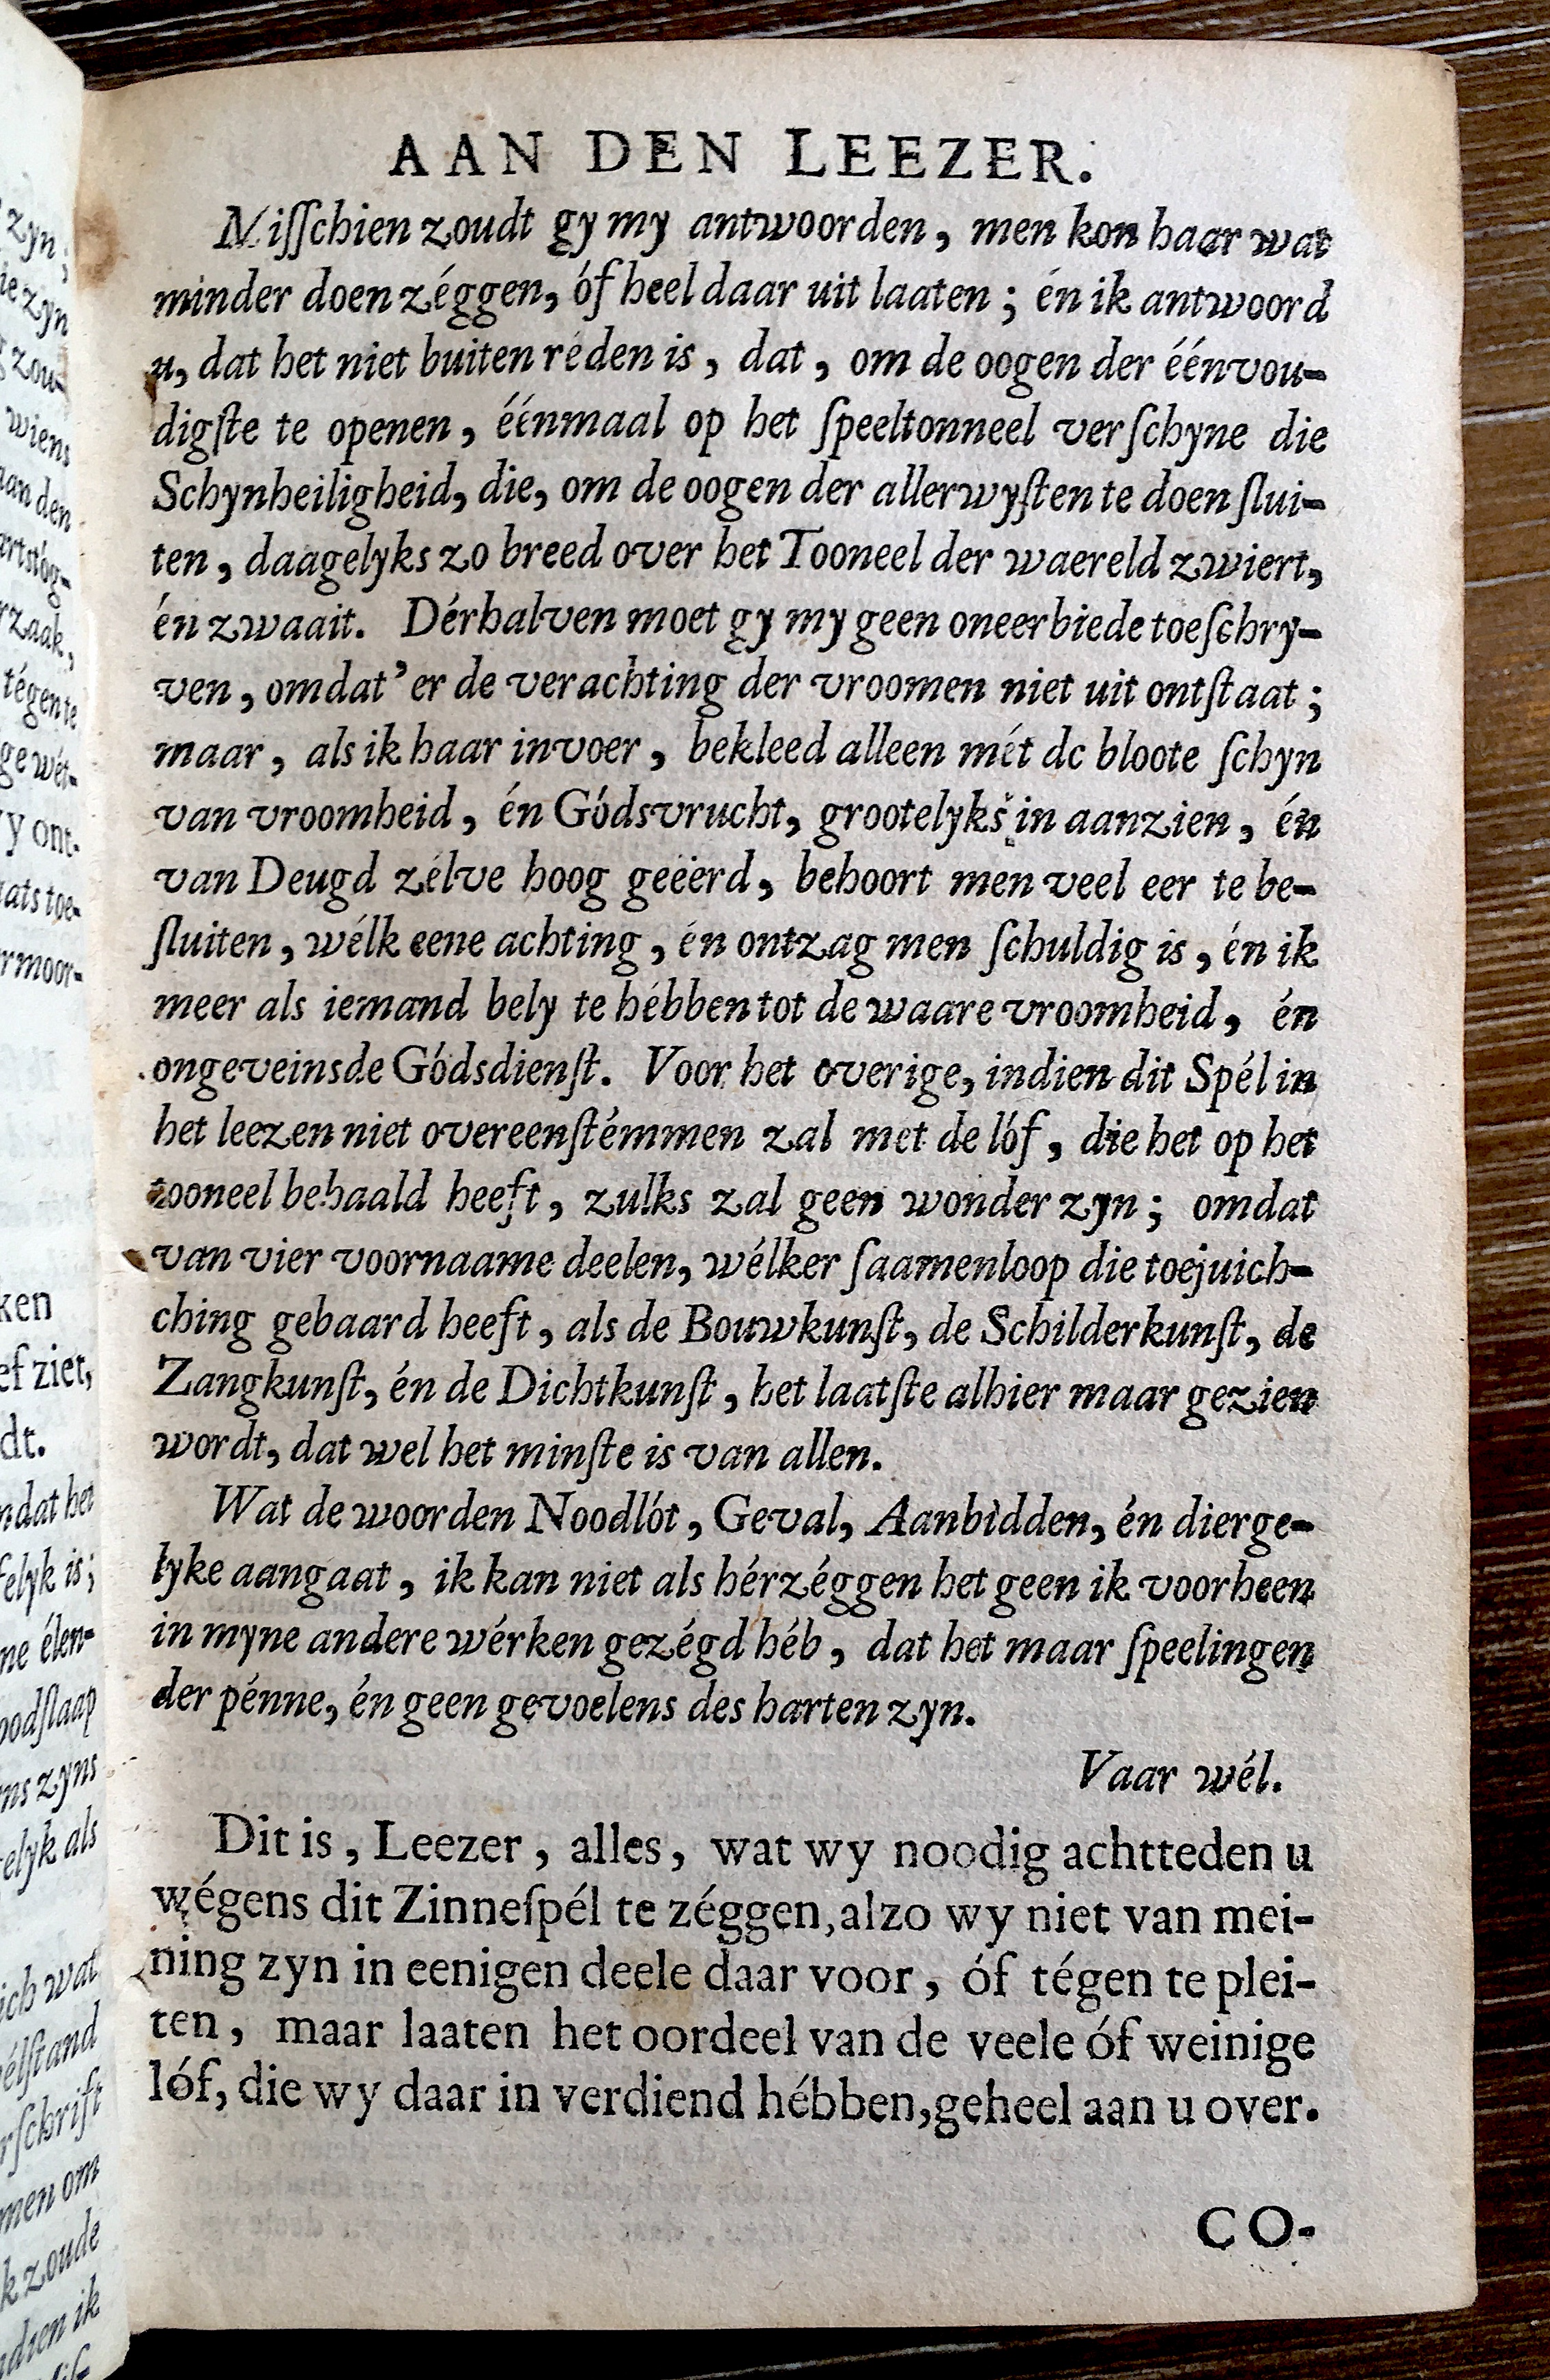 AAN DEN LEEZER.
Miſſchien zoudt gy my antwoorden, men kon haar wat
minder doen zéggen, óf heel daar uit laaten; én ik antwoord
u, dat het niet buiten réden is, dat, om de oogen der éénvou-
digſte te openen, éénmaal op het ſpeeltonneel verſchyne die
Schynheiligheid, die, om de oogen der allerwyſten te doen ſlui-
ten, daagelyks zo breed over het Tooneel der waereld zwiert,
én zwaait. Dérhalven moet gy my geen oneerbiede toeſchry-
ven, omdat'er de verachting der vroomen niet uit ontſtaat;
maar, als ik haar invoer, bekleed alleen mét de bloote ſchyn
van vroomheid, én Gódsvrucht, grootelyks in aanzien, én
van Deugd zélve hoog geëerd, behoort men veel eer te be-
ſluiten, wélk eene achting, én ontzag men ſchuldig is, én ik
meer als iemand bely te hébben tot de waare vroomheid, én
ongeveinsde Gódsdienſt. Voor het overige, indien dit Spél in
het leezen niet overeenſtémmen zal met de lóf, die het op het
tooneel behaald heeft, zulks zal geen wonder zyn; omdat
van vier voornaame deelen, wélker ſaamenloop die toejuich-
ching gebaard heeft, als de Bouwkunſt, de Schilderkunſt, de
Zangkunſt, én de Dichtkunſt, het laatſte alhier maar gezien
wordt, dat wel het minſte is van allen.
Wat de woorden Noodlót, Geval, Aanbidden, én dierge-
lyke aangaat, ik kan niet als hérzéggen het geen ik voorheen
in myne andere wérken gezégd héb, dat het maar ſpeelingen
der pénne, én geen gevoelens des harten zyn.
Vaar wél.
Dit is, Leezer, alles, wat wy noodig achtteden u
wégens dit Zinneſpél te zéggen, alzo wy niet van mei-
ning zyn in eenigen deele daar voor, óf tégen te plei-
ten, maar laaten het oordeel van de veele óf weinige
lóf, die wy daar in verdiend hébben, geheel aan u over.
CO-